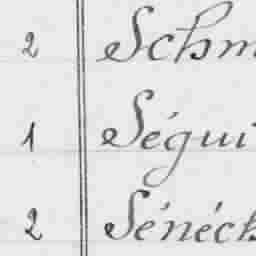 2 Schm
1 Ségui
2 Sénéch